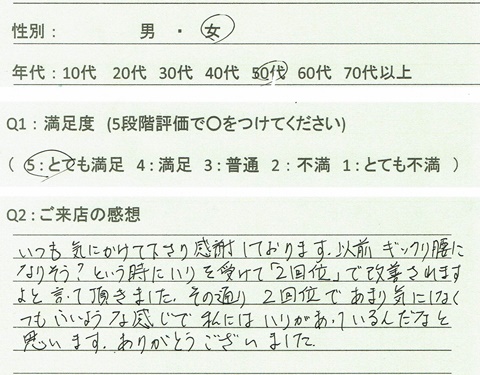 性別： 男 ・ 女
年代：10代 20代 30代 40代 50代 60代 70代以上
Q1：満足度 (5段階評価で〇をつけてください)
( 5：とても満足 4：満足 3：普通 2：不満 1：とても不満 )
Q2：ご来店の感想
いつも気にかけて下さり感謝しております。以前 ギックリ腰に
なりそう？という時にハリを受けて「2回位」で改善されます
よと言って頂きました。その通り 2回位であまり気にしなく
つもいいような感じで私にはハリがあっているんだなと
思います。ありがとうございました。